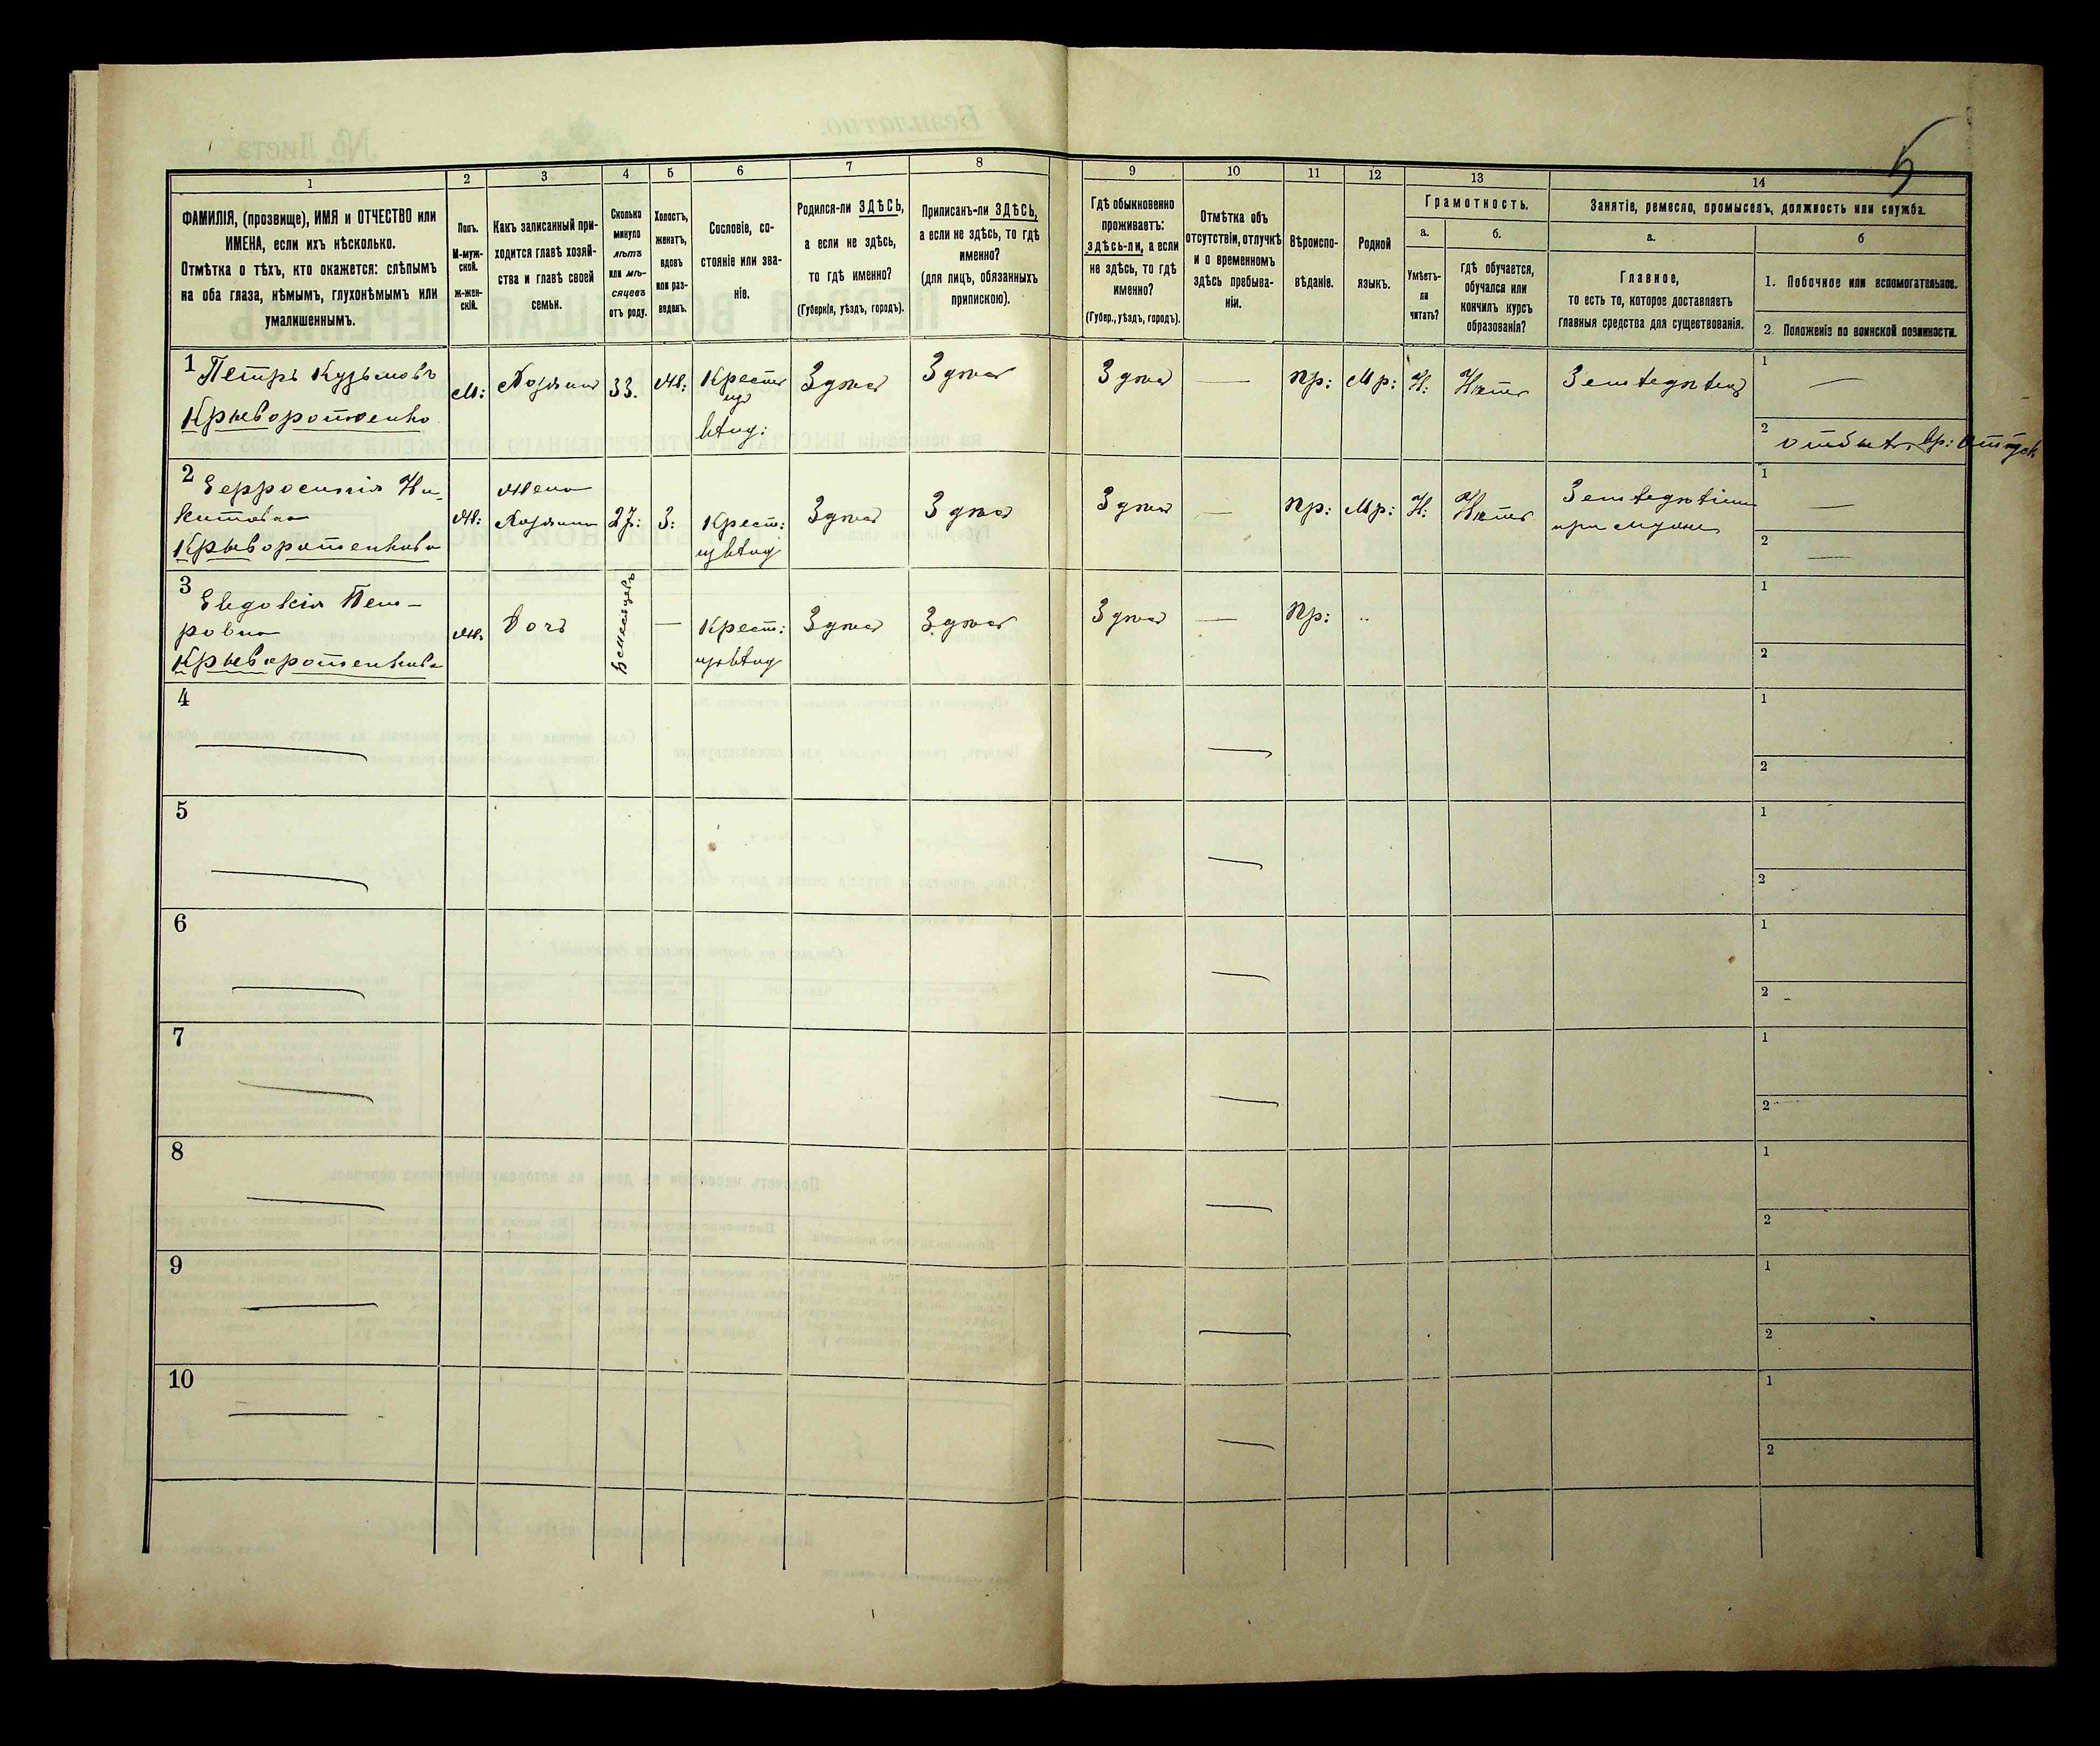 5
1
2
3
4
5
6
7
8
9
10
11
12
13
14
ФАМИЛІЯ, (прозвище), ИМЯ и ОТЧЕСТВО или
ИМЕНА, если ихъ нѣсколько.
Отмѣтка о тѣхъ, кто окажется: слѣпымъ
на оба глаза, нѣмымъ, глухонѣмымъ или
умалишеннымъ.
Полъ.
М-муж-
ской.
ж-жен-
скій.
Какъ записанный при-
ходится главѣ хозяй-
ства и главѣ своей
семьи.
Сколько
минуло
лѣтъ
или мѣ-
сяцевъ
отъ роду.
Холостъ,
женатъ,
вдовъ
или раз-
веденъ.
Сословіе, со-
стояніе или зва-
ніе.
Родился-ли ЗДѢСЬ,
а если не здѣсь,
то гдѣ именно?
(Губернія, уѣздъ, городъ).
Приписанъ-ли ЗДѢСЬ,
а если не здѣсь, то гдѣ
именно?
(для лицъ, обязанныхъ
припискою).
Гдѣ обыкновенно
проживаетъ:
здѣсь-ли, а если
не здѣсь, то гдѣ
именно?
(Губер., уѣздъ, городъ).
Отмѣтка объ
отсутствіи, отлучкѣ
и о временномъ
здѣсь пребыва-
ніи.
Вѣроиспо-
вѣданіе.
Родной
языкъ.
Грамотность.
а.
б.
Умѣетъ-
ли
читать?
гдѣ обучается,
обучался или
кончилъ курсъ
образованія?
Занятіе, ремесло, промыселъ, должность или служба.
а.
б
Главное,
то есть то, которое доставляетъ
главныя средства для существованія.
1. Побочное или вспомогательное.
2. Положеніе по воинской повинности.
1 Петръ Кузьмовъ
Крыворотенко
М:
Хозяинъ
33.
Ж:
Крестя
нъ
влад:
Здѣсь
Здѣсь
Здѣсь
—
Пр:
Мр:
Н:
Нѣтъ
Земледѣлецъ
1 —
2
2 Ефросинія Ни-
китовна
Крыворотенкова
Ж:
Жена
Хозяина
27:
З:
Крест:
Здѣсь
Здѣсь
Здѣсь
—
Пр:
Мр:
Н:
Нѣтъ
при мужѣ
1 —
2 —
3 Евдокія Пет-
ровна
Крыворотенкова
Ж.
Дочь
—
Крест:
Здѣсь
Здѣсь
Здѣсь
—
Пр:
1
2
4 —
—
1
2
5 —
—
1
2
6 —
—
1
2
7 —
—
1
2
8 —
—
1
2
9 —
—
1
2
10 —
—
1
2